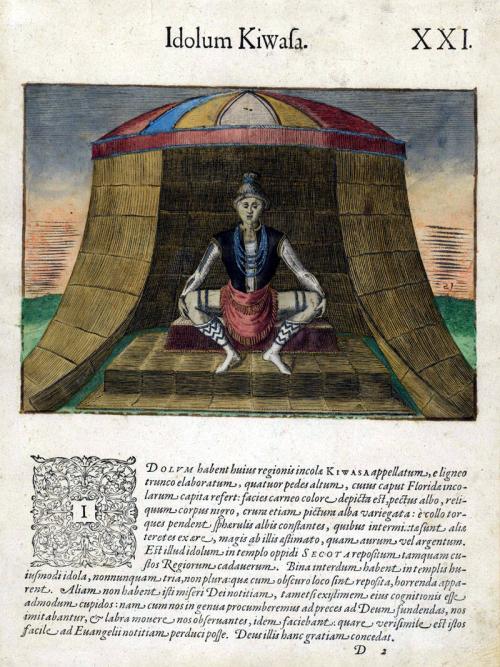 Idolum Kiwaſa. XXI.
21
I DOLVM habent huius regionis incolæ KIWASA appellatum, e ligneo
trunco elaboratum, quatuor pedes altum, cuius caput Floridæ inco-
larum capita refert: facies carneo colore depicta est, pectus albo, reli-
quum corpus nigro, crura etiam pictura alba variegata: è collo tor-
ques pendent sphærulis albis constantes, quibus intermixtæ sunt aliæ
teretes ex ære, magis ab illis æstimato, quam aurum vel argentum.
Est illud idolum in templo oppidi SECOTA repositum tamquam cu-
stos Regiorum cadauerum. Bina interdum habent in templis hu-
iusmodi idola, nonnunquam tria, non plura: quæ cum obscuro loco sint reposita, horrenda appa-
rent. Aliam non habent isti miseri Dei notitiam, tametsi existimem eius cognitionis esse
admodum cupidos: nam cum nos in genua procumberemus ad preces ad Deum fundendas, nos
imitabantur, & labra mouere nos obseruantes, idem faciebant: quare verisimile est istos
facile ad Euangelii notitiam perduci posse. Deus illis hanc gratiam concedat.
D 2